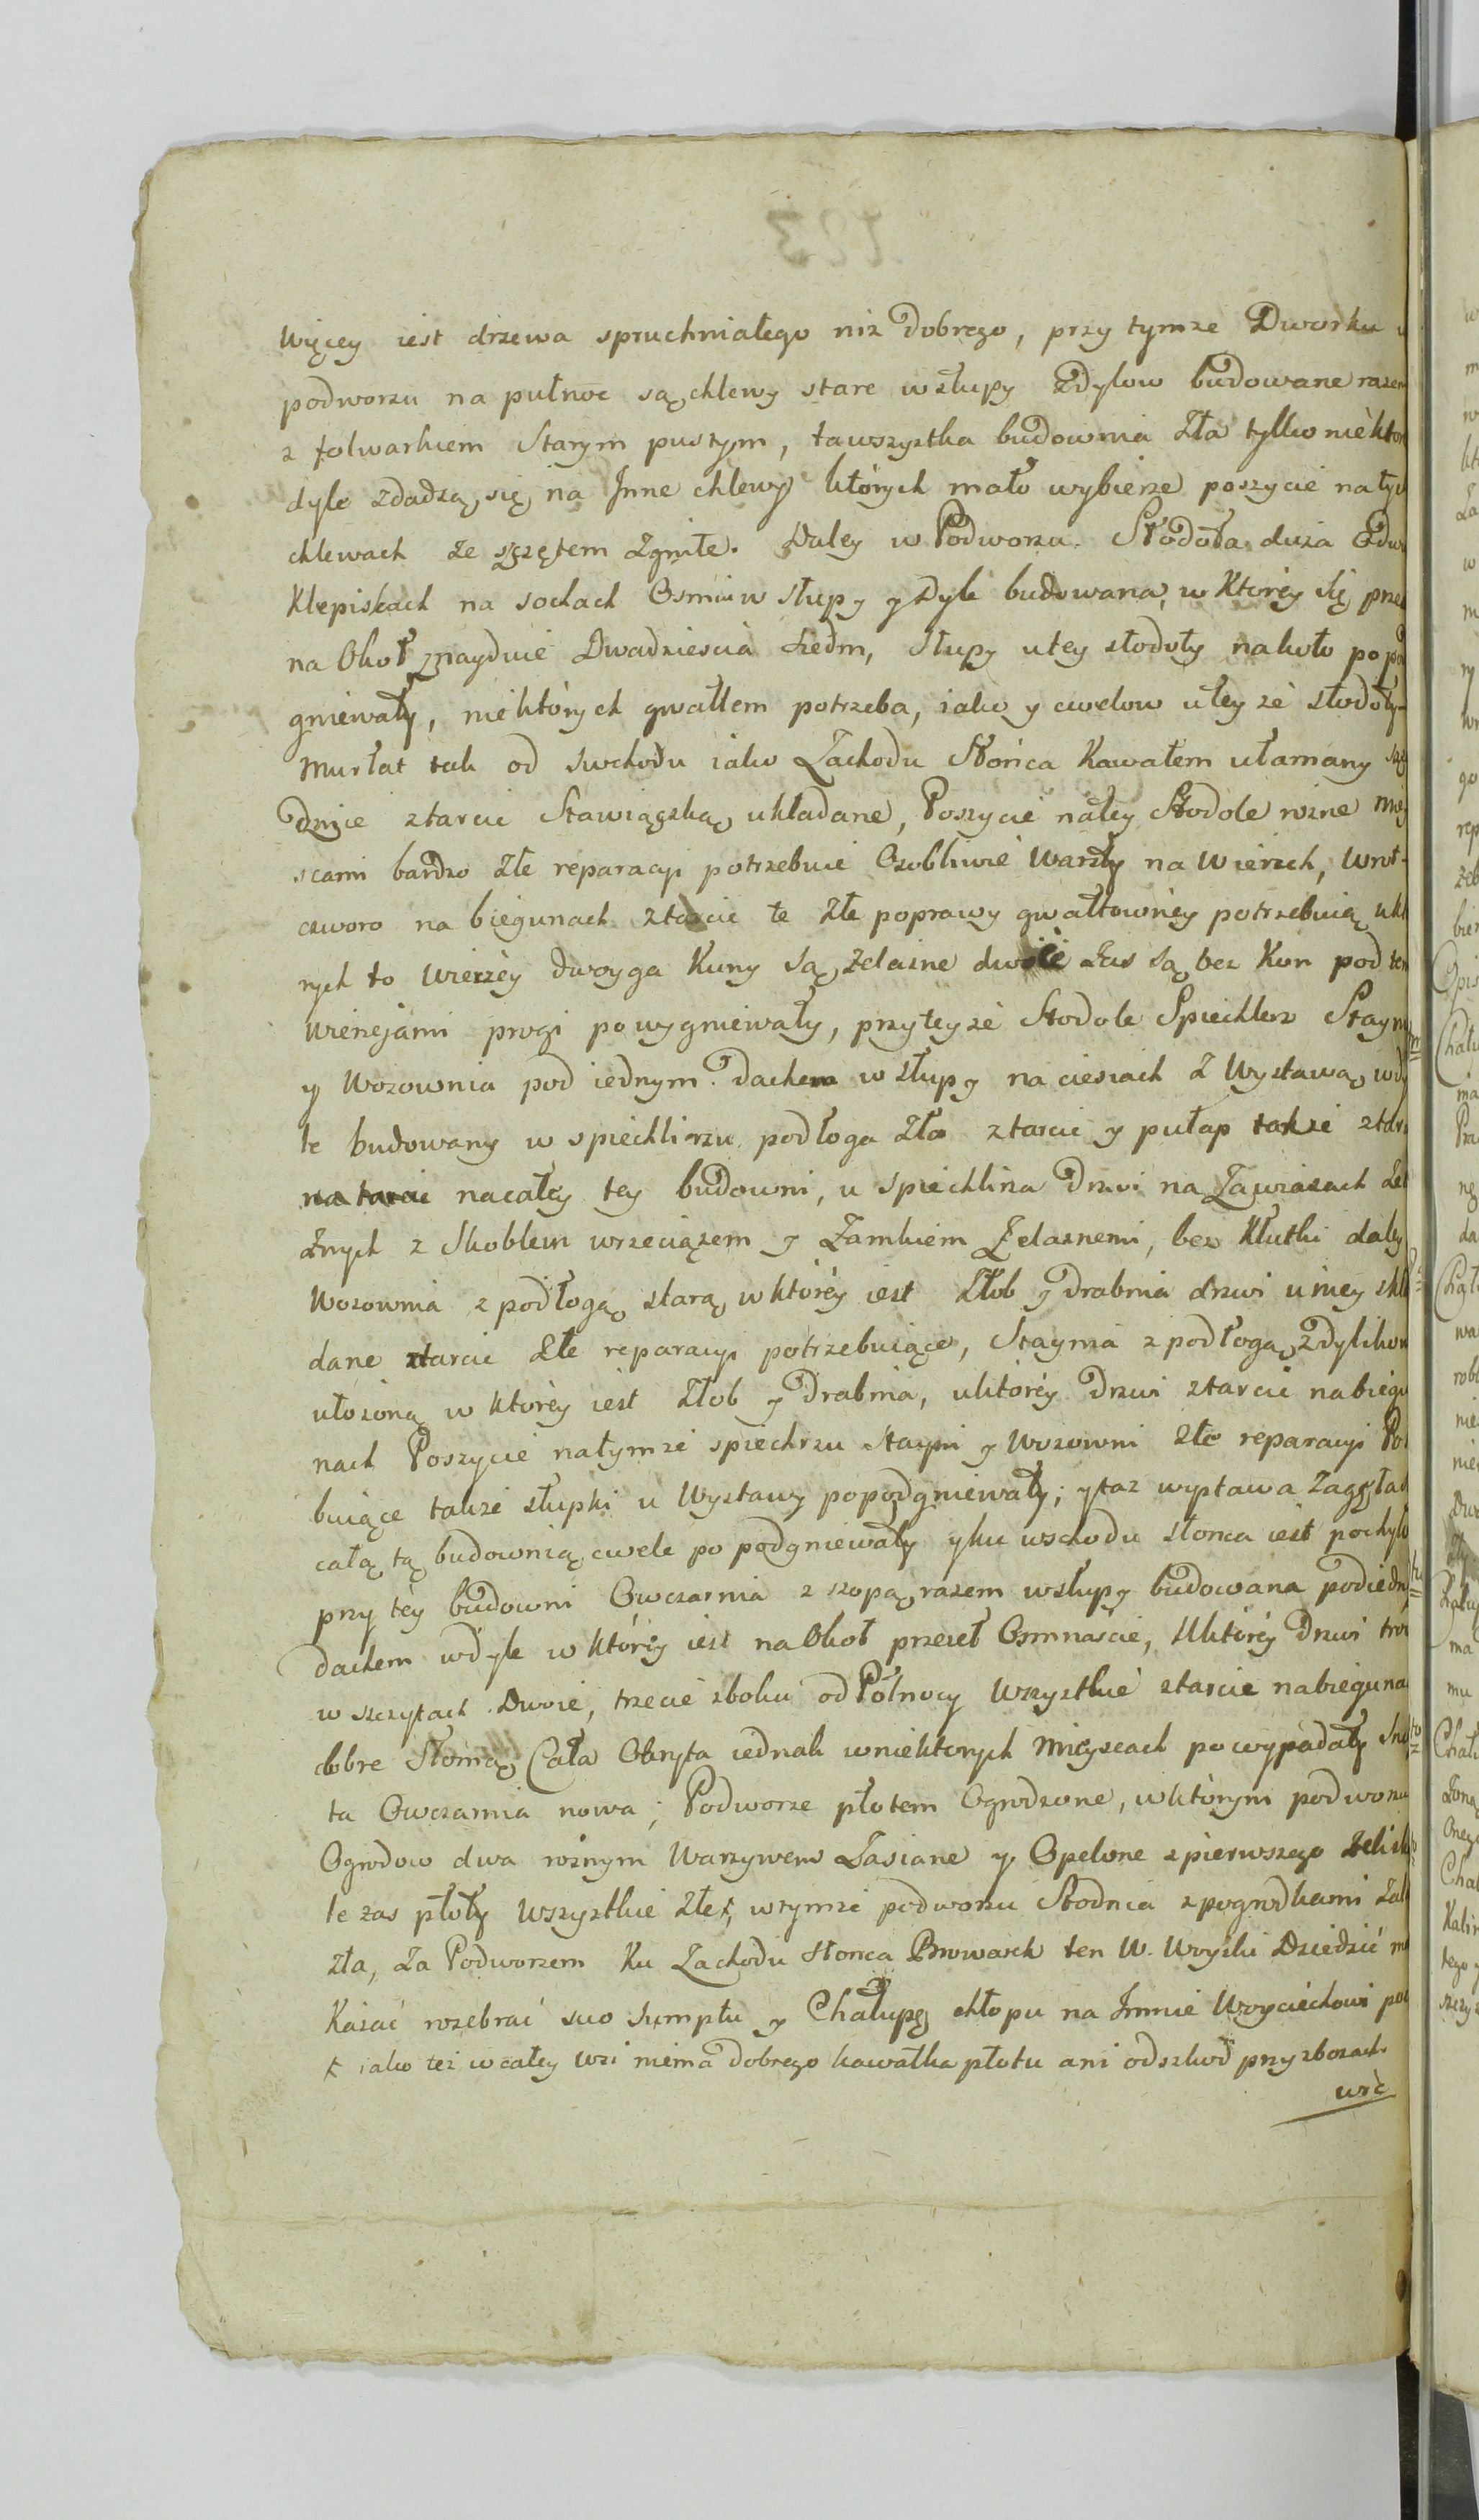 Więcey iest drzewa spruchniałego niz dobrego, przy tymze Dworku
podworzu na pułnoc są chlewy stare w słupy zdylow budowane razem
z folwarkiem Starym pustym, ta wszystka budownia zła tylko niektor
dyle zdadzą się na Inne chlewy których mało wybierze poszycie na tych
chlewach ze szczętem zgniłe. Daley w Podworzu Stodoła duża Odwu
Klepiskach na sochach Osmiu w słupy y dyle budowana, w Ktorey się prze
na Okoł znayduie Dwadziescia siedm, słupy u tey stodoły nakoło popod
gniewały, niektórych gwałtem potrzeba, iako y cwelow u tey ze stodoły
Murłat tak od swchodu iako Zachodu Słońca Kawałem ułamany
ztarcic Stawiączką układane, Poszycie na tey Stodole rozne miey
scami bardzo złe reparacyi potrzebuie Osobliwie Warzty na Wierzch, Wrot
czworo na biegunach ztarcic te złe poprawy gwałtowney potrzebuią
nych to wierzey dwoyga Kuny są żelazne dwoie Zas są bez Kun pod tem
wierzejami progi powygniewały, przy teyze Stodole Spiechlerz Stayn
y Wozownia pod iednym dachem w słupy na ciesiach z Wystawą w dy
le budowany w spiechlirzu podłoga zła ztarcic y pułap takze ztar
na całey tey budowni, u spiechlirza drzwi na Zawiasach żel
znych z Skoblem wrzeciązem y Zamkiem żelaznemi, bez Kłutki daley
Wozownia z podłogą starą w którey iest żłob y drabnia drzwi u niey skła
dane ztarcic złe reparacyi potrzebuiące, Staynia z podłogą z dylikow
ułozoną w ktorey iest żłob y drabnia, uktórey drzwi ztarcic na biegu
nach Poszycie na tymze spiechrzu Stayni y Wozowni złe reparacyi Po
buiące takze słupki u Wystawy popodgniewały; y taz wystawa
całą tą budownią cwele po podgniewały y ku wschodu słonca iest pochyło
przy tey budowni Owczarnia z szopą razem w słupy budowana pod iedny
dachem w dyle w którey iest na Okoł przeseł Osmnascie, Uktórey drzwi tro
w szczytach Dwoie, trzecie zboku od Północy Wszystkie ztarcic na biegunach
dobre Słomą Cała Okryta iednak w niektorych Mieyscach powypadały
ta Owczarnia nowa; Podworze płotem Ogrodzone, w którym podworzu
Ogrodow dwa roznym Warzywem Zasiane y Opelone z pierwszego
te zas płoty Wszystkie złe +, w tymze podworzu Studnia z pogrodkami
zła, Za Podworzem Ku Zachodu słonca Browarek ten W. Woyski Dziedzic
Kazać rozebrać suo sumptu y Chałupę chłopu na Imnie Woyciechowi
+ iako tez w całey wsi niema dobrego kawałka płotu ani odszkod przy zbozach.